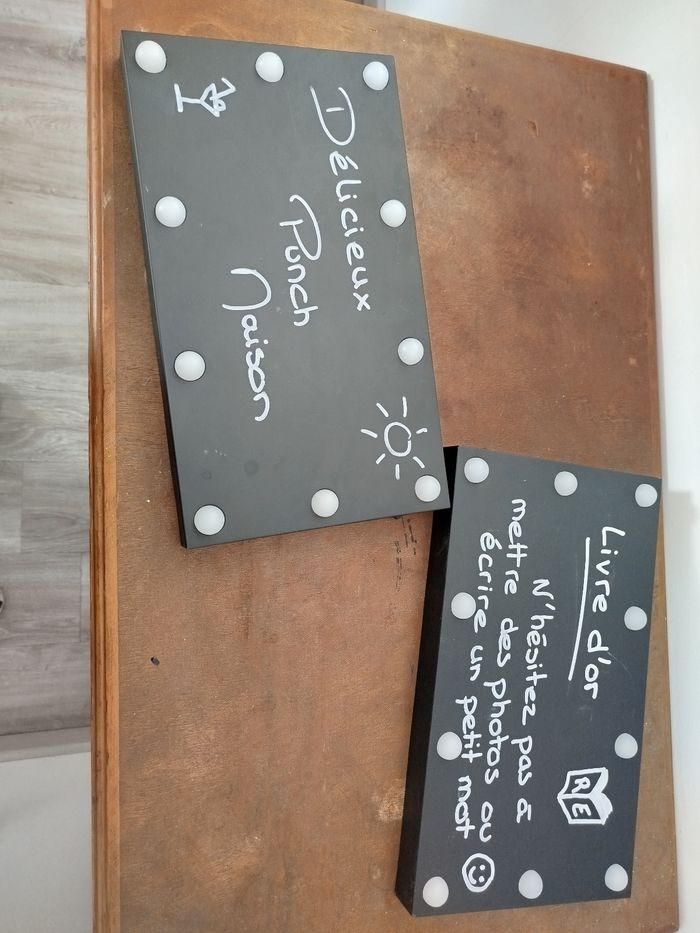 Délicieux
Punch
Maison
Livre d'or
N'hésitez pas à
mettre des photos ou
écrire un petit mot
R E